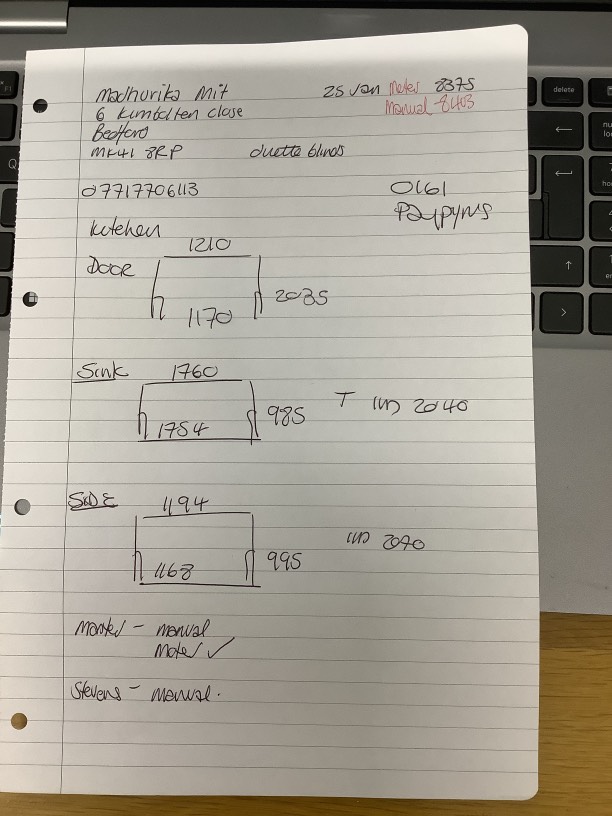 Madhurika Mit 25 Jan Moter 8375
6 Kimbolten close Manual 8403
Bedford
MK41 8RP duette blinds
07717706113 0161
Papyrus
Kitchen
1210
DOOR
2035
1170
Sink 1760
985 T (in) 2040
1754
SIDE 1194
(in) 2070
995
1168
Mantel - manual
Moter ✓
Stevens - manual.